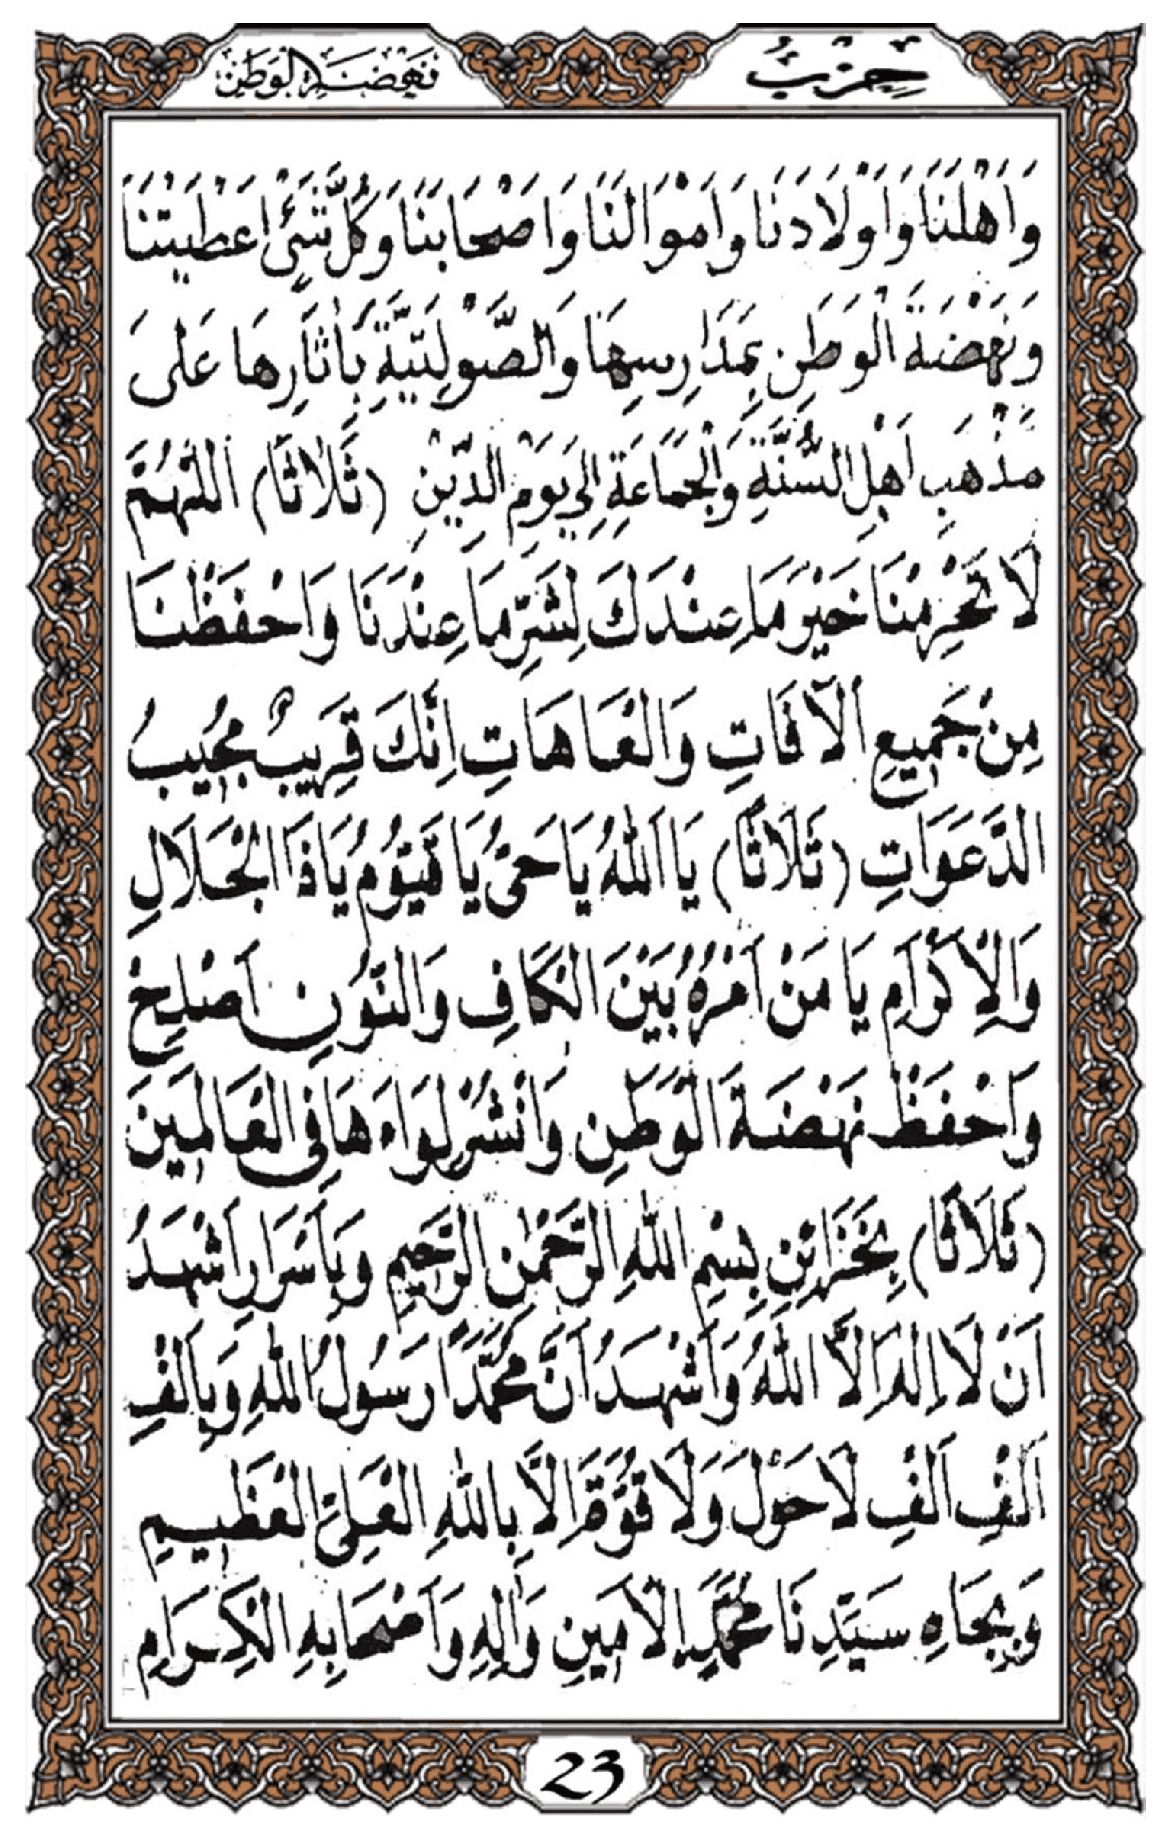 حِزْبُ
نَهْضَةِ الْوَطَنِ
وَاَهْلَنَا وَاَوْلَادَنَا وَاَمْوَالَنَا وَاَصْحَابَنَا وَكُلَّ شَىْءٍ اَعْطَيْتَنَا
وَنَهْضَةَ الْوَطَنِ بِمَدَارِسِهَا وَالصَّوْلَتِيَّةِ بِأٰثَارِهَا عَلَى
مَذْهَبِ اَهْلِ السُّنَّةِ وَالْجَمَاعَةِ اِلَى يَوْمِ الدِّيْنِ (ثَلَاثًا) اَللّٰهُمَّ
لَا تَحْرِمْنَا خَيْرَ مَا عِنْدَكَ لِشَرِّ مَا عِنْدَنَا وَاحْفَظْنَا
مِنْ جَمِيعِ الْآفَاتِ وَالْعَاهَاتِ اِنَّكَ قَرِيبٌ مُجِيبُ
الدَّعَوَاتِ (ثَلَاثًا) يَا اَللّٰهُ يَا حَىُّ يَا قَيُّوْمُ يَا ذَا الْجَلَالِ
وَالْاِكْرَامِ يَا مَنْ اَمْرُهُ بَيْنَ الْكَافِ وَالنُّوْنِ اَصْلِحْ
وَاحْفَظْ نَهْضَةَ الْوَطَنِ وَانْشُرْ لِوَاءَهَا فِى الْعَالَمِيْنَ
(ثَلَاثًا) بِخَزَائِنِ بِسْمِ اللّٰهِ الرَّحْمٰنِ الرَّحِيمِ وَبِأَسْرَارِ اَشْهَدُ
اَنْ لَا اِلٰهَ اِلَّا اللّٰهُ وَاَشْهَدُ اَنَّ مُحَمَّدًا رَسُولُ اللّٰهِ وَبِاَلْفِ
اَلْفِ اَلْفِ لَا حَوْلَ وَلَا قُوَّةَ اِلَّا بِاللّٰهِ الْعَلِىِّ الْعَظِيمِ
وَبِجَاهِ سَيِّدِنَا مُحَمَّدٍ الْاَمِينِ وَاٰلِهِ وَاَصْحَابِهِ الْكِرَامِ
23